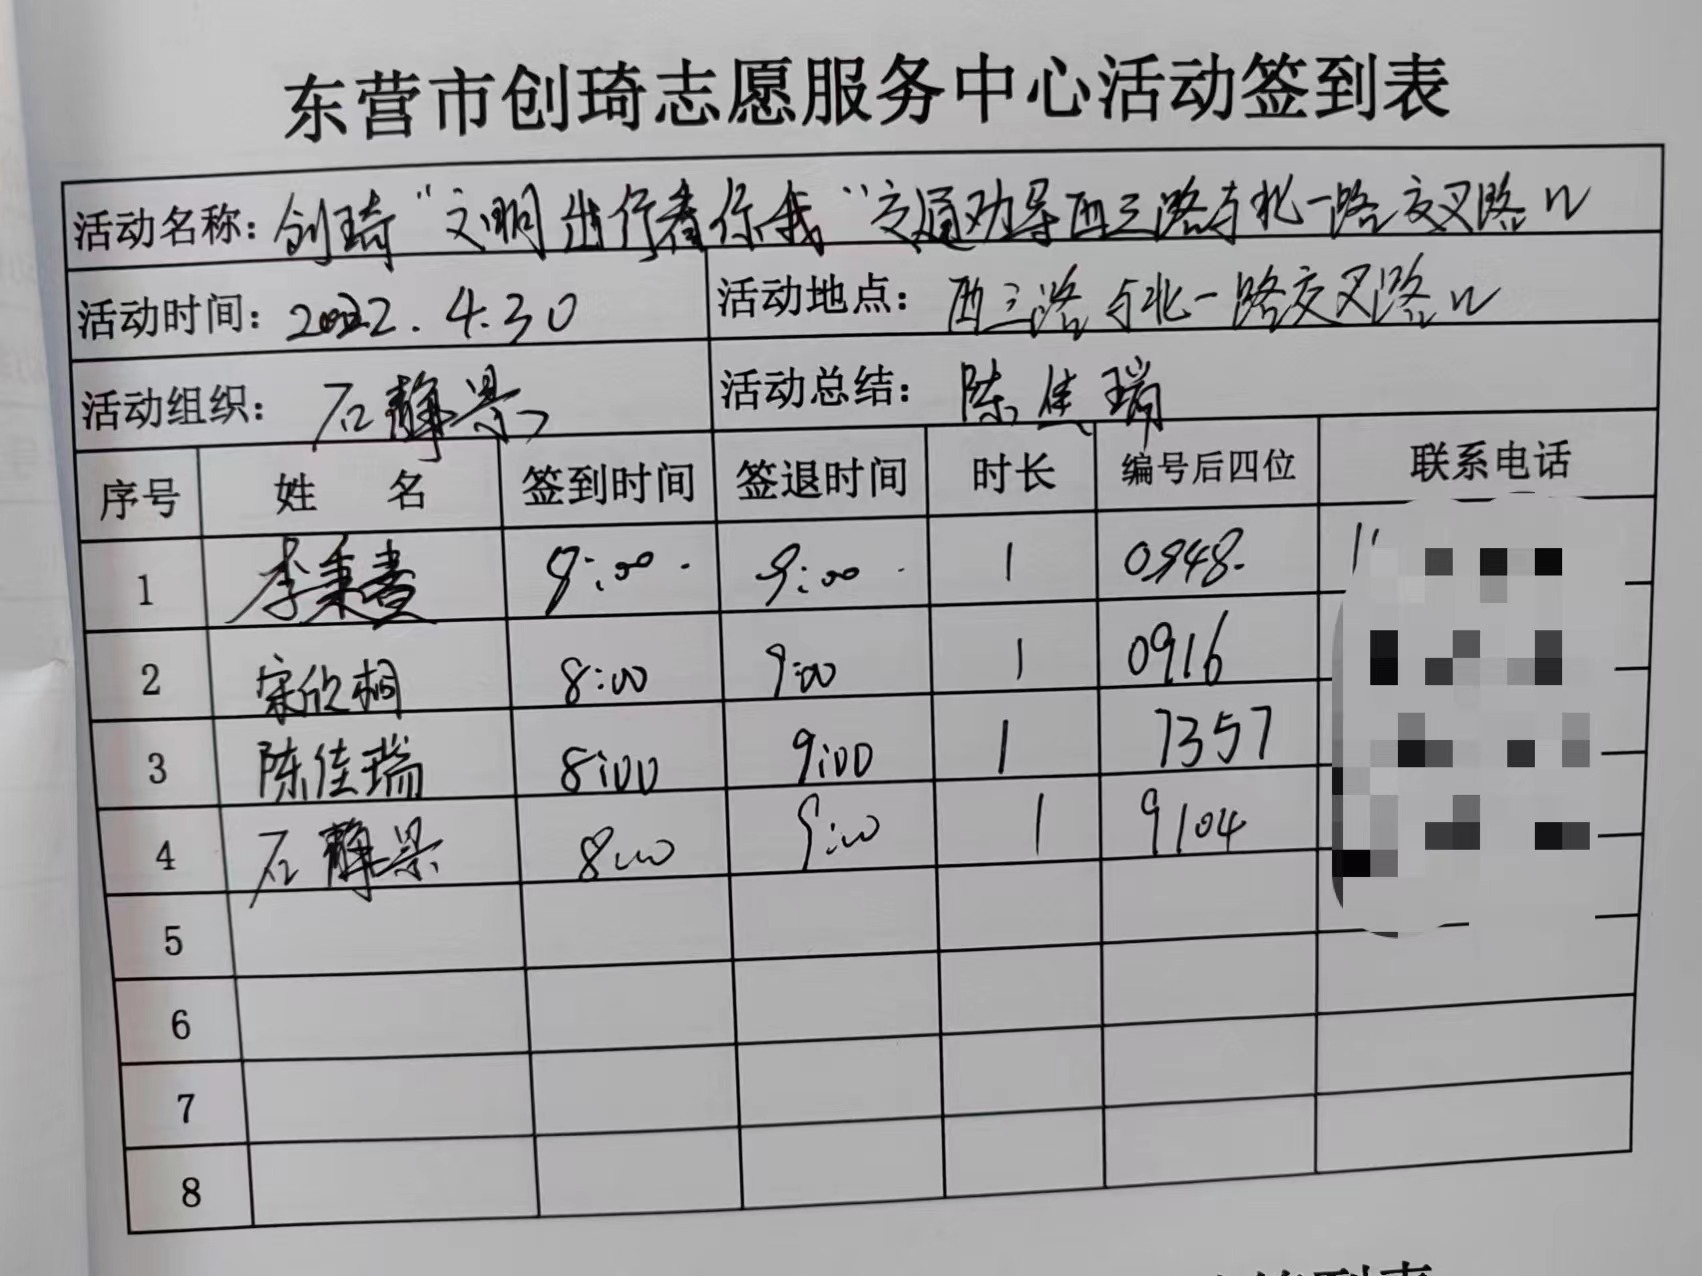 东营市创琦志愿服务中心活动签到表
活动名称：创琦“文明出行看你我”交通劝导西三路与北一路交叉路口
活动时间：2022.4.30 活动地点：西三路与北一路交叉路口
活动组织：石静景 活动总结：陈佳瑞
序号 姓名 签到时间 签退时间 时长 编号后四位 联系电话
1 李秉 8:00 9:00 1 0948
2 宋欣桐 8:00 9:00 1 0916
3 陈佳瑞 8:00 9:00 1 7357
4 石静景 8:00 9:00 1 9104
5
6
7
8